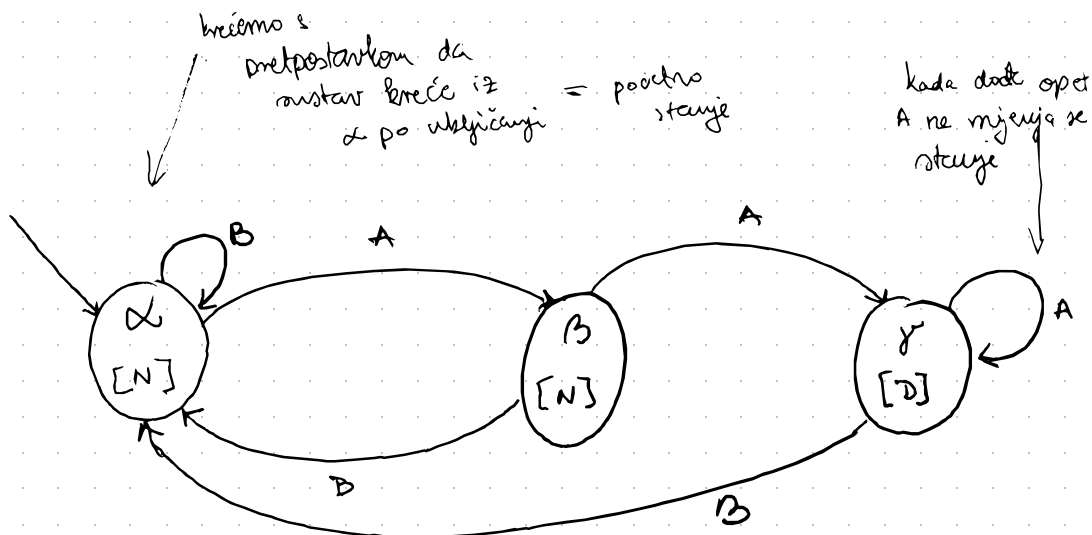 krećemo s
pretpostavkom da
sustav kreće iz = početno
α po uključenju stanje
kada dođe opet
A ne mijenja se
stanje
B
A
A
A
α
[N]
β
[N]
γ
[D]
B
B